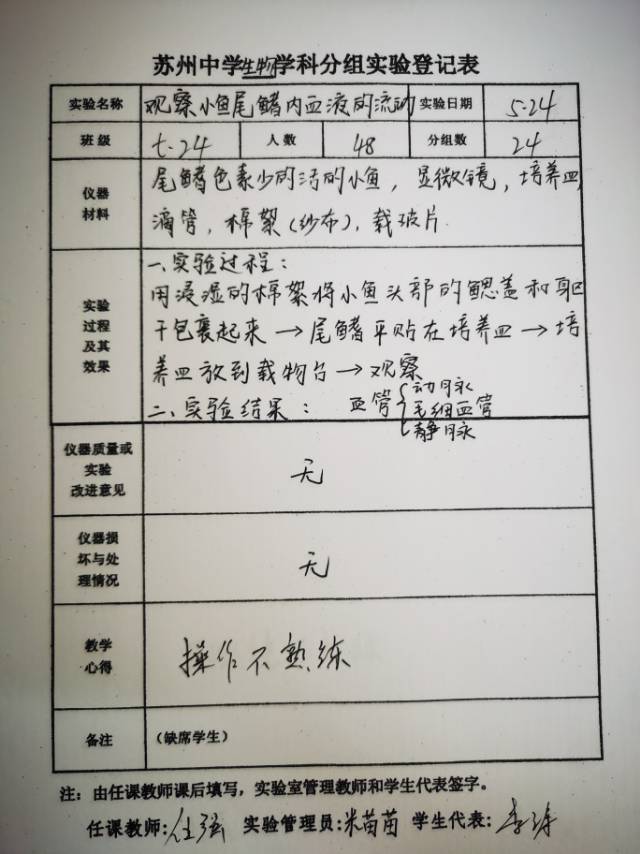 苏州中学生物学科分组实验登记表
实验名称 观察小鱼尾鳍内血液的流动 实验日期 5.24
班级 七.24 人数 48 分组数 24
仪器
材料
尾鳍色素少的活的小鱼，显微镜，培养皿，
滴管，棉絮（纱布），载玻片
实验
过程
及其
效果
一、实验过程：
用浸湿的棉絮将小鱼头部的鳃盖和躯
干包裹起来→尾鳍平贴在培养皿→培
养皿放到载物台→观察
二、实验结果： 血管{动脉
毛细血管
静脉
仪器质量或
实验
改进意见
无
仪器损
坏与处
理情况
无
教学
心得
操作不熟练
备注 （缺席学生）
注：由任课教师课后填写，实验室管理教师和学生代表签字。
任课教师:任强 实验管理员:米苗苗 学生代表:李